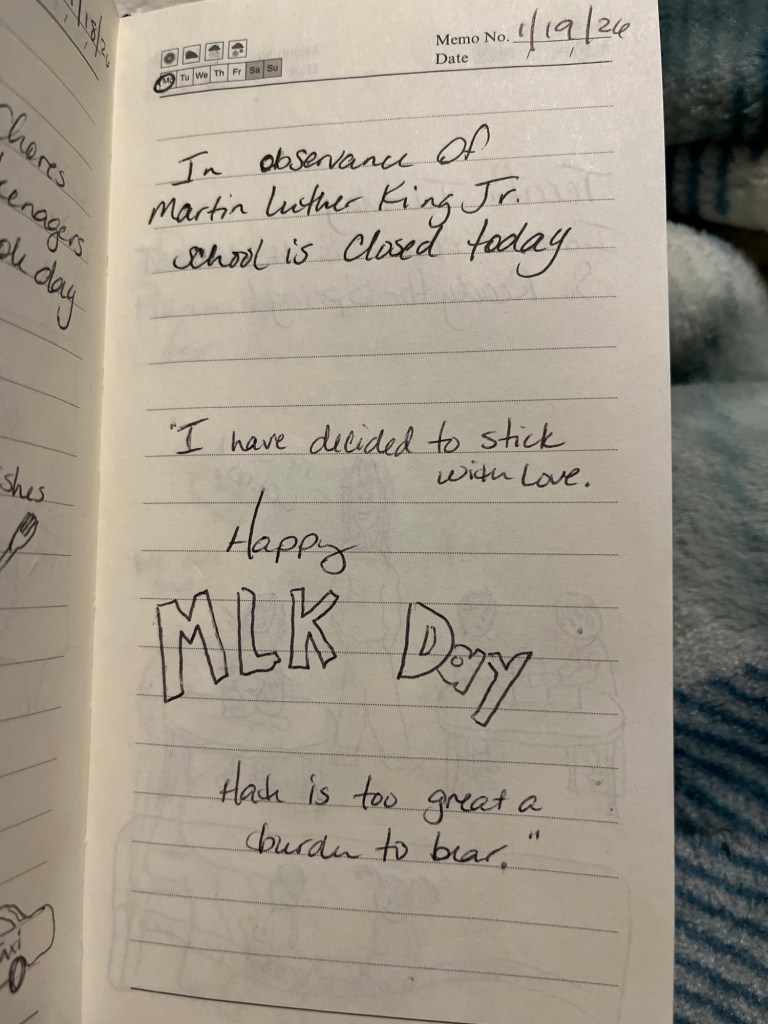 1/18/26
Chores
eenagers
ok day
shes
axi
Memo No. 1/19/26
Date
Mo Tu We Th Fr Sa Su
In observance Of
Martin Luther King Jr.
school is Closed today
"I have decided to stick
with Love.
Happy
MLK Day
Hate is too great a
burden to bear."